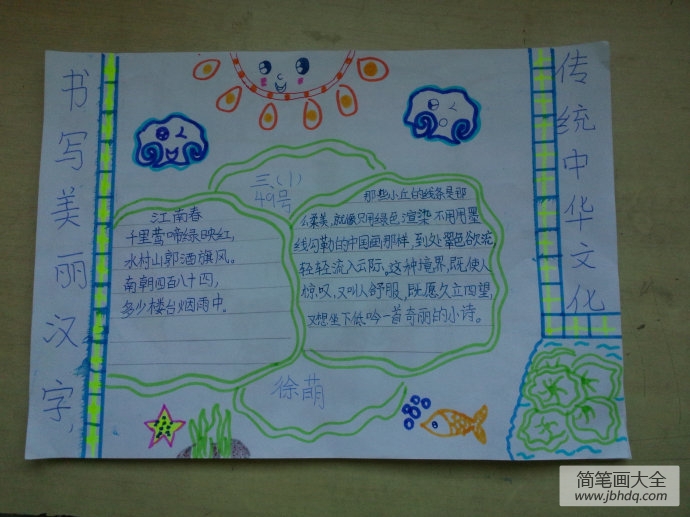 书写美丽汉字
传统中华文化
三、(1)
49号
江南春
千里莺啼绿映红,
水村山郭酒旗风。
南朝四百八十四,
多少楼台烟雨中。
那些小丘的线条是那
么柔美,就像只用绿色渲染,不用用墨
线勾勒的中国画那样,到处翠色欲流,
轻轻流入云际,这种境界,既使人
惊叹,又叫人舒服,既愿久立四望,
又想坐下低吟一首奇丽的小诗。
徐萌
简笔画大全
www.jbhdq.com